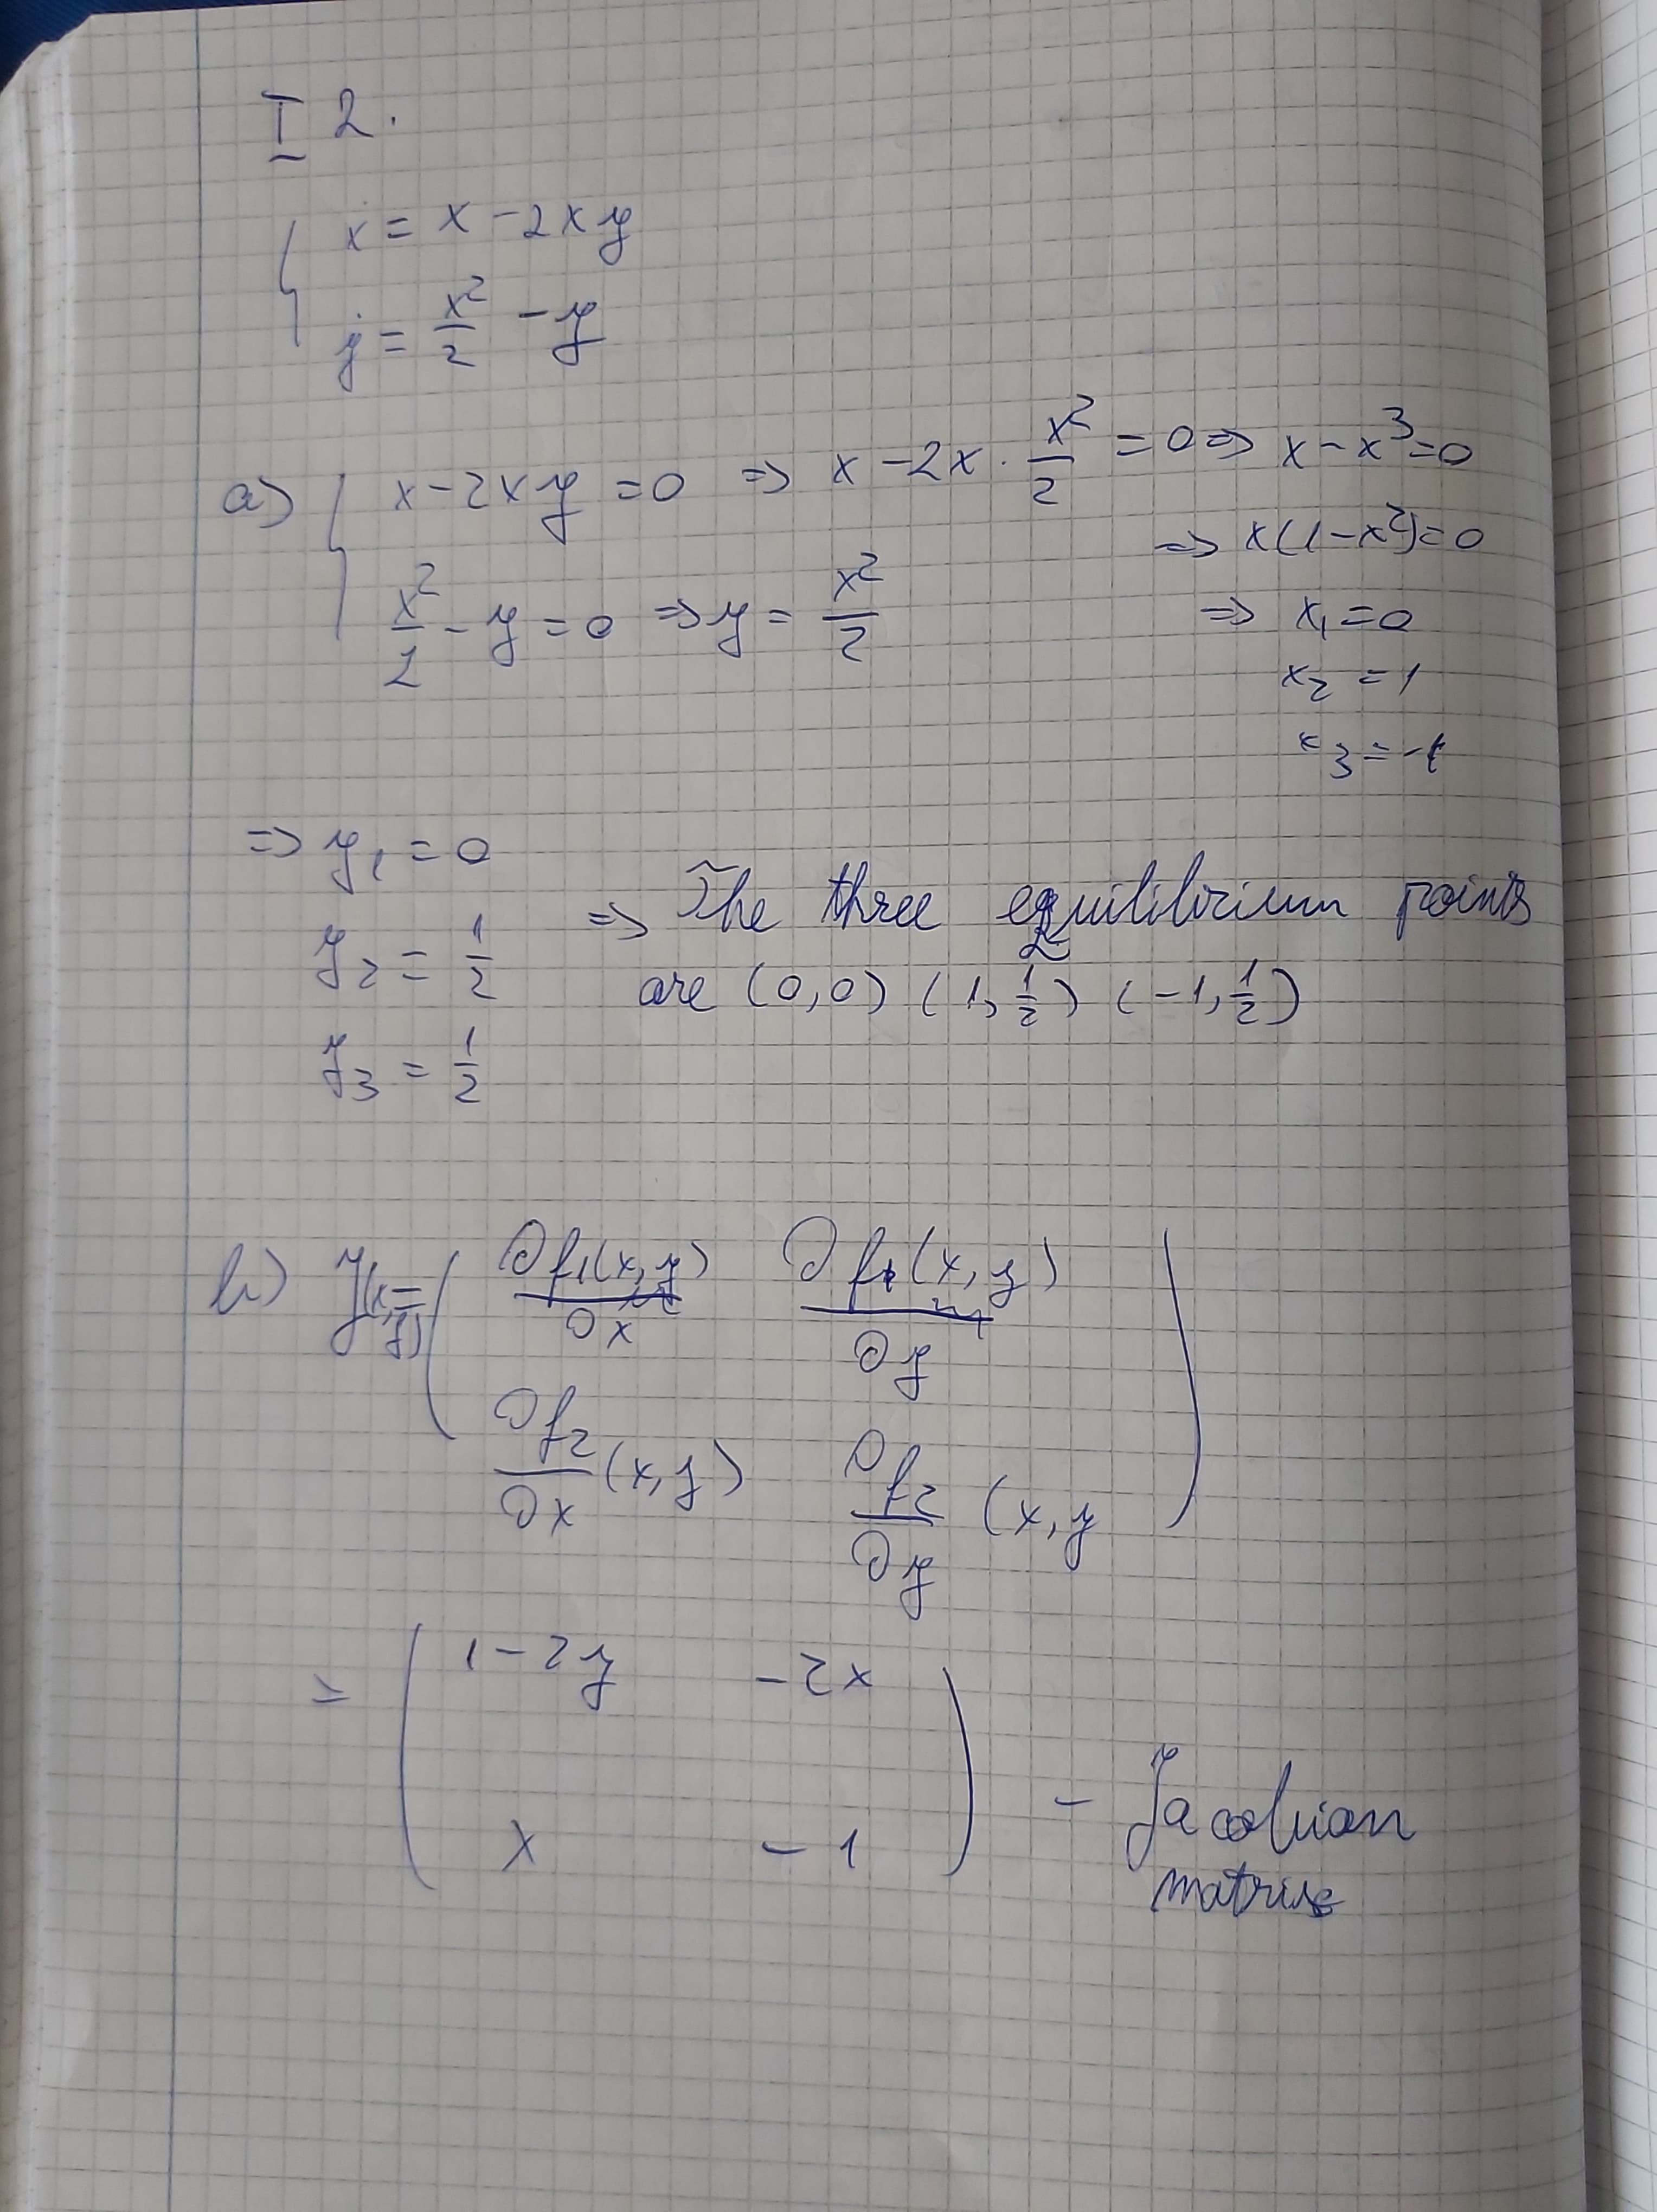 I 2.
{ ẋ = x - 2xy
ẏ = x²/2 - y
a) { x - 2xy = 0 => x - 2x · x²/2 = 0 => x - x³ = 0
=> x(1 - x²) = 0
x²/2 - y = 0 => y = x²/2
=> x₁ = 0
x₂ = 1
x₃ = -1
=> y₁ = 0
y₂ = 1/2
y₃ = 1/2
=> The three equilibrium points
are (0,0) (1, 1/2) (-1, 1/2)
b) J(x,y) = ( ∂f₁(x,y)/∂x ∂f₁(x,y)/∂y
∂f₂/∂x (x,y) ∂f₂/∂y (x,y )
= ( 1 - 2y -2x
x -1 ) - Jacobian
matrix